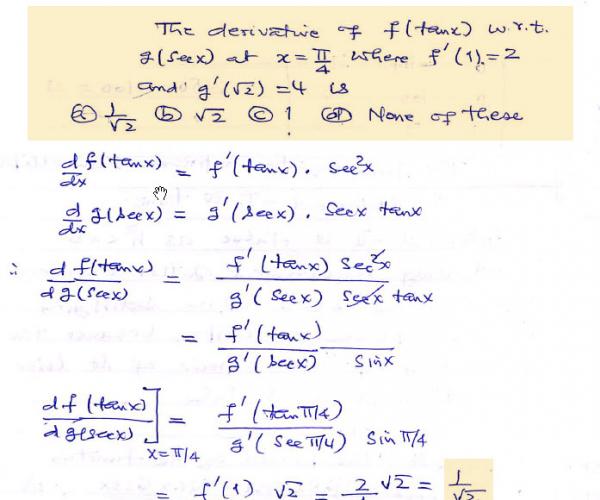 The derivative of f(tanx) w.r.t.
g(secx) at x = π/4 where f'(1) = 2
and g'(√2) = 4 is
ⓐ 1/√2 ⓑ √2 ⓒ 1 ⓓ None of these
d/dx f(tanx) = f'(tanx) . sec²x
d/dx g(secx) = g'(secx) . secx tanx
∴ d f(tanx) / d g(secx) = f'(tanx) sec²x / g'(secx) secx tanx
= f'(tanx) / g'(secx) sinx
d f(tanx) / d g(secx) ] x=π/4 = f'(tan π/4) / g'(sec π/4) sin π/4
= f'(1) √2 = 2 √2 = 1/√2